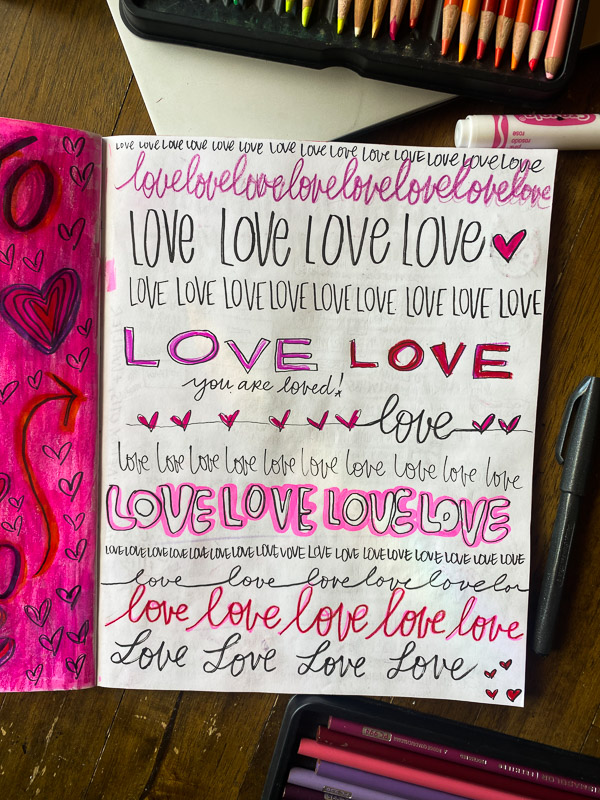 LOVE LOVE LOVE LOVE LOVE LOVE LOVE LOVE LOVE LOVE LOVE LOVE LOVE LOVE
lovelovelovelovelovelovelovelove
LOVE LOVE LOVE LOVE
LOVE LOVE LOVE LOVE LOVE LOVE LOVE LOVE LOVE
LOVE LOVE
you are loved!
love
love love love love love love love love love love
LOVE LOVE LOVE LOVE
LOVE LOVE LOVE LOVE LOVE LOVE LOVE LOVE VOVE LOVE LOVE LOVE LOVE LOVE LOVE LOVE LOVE
love love love love love lov
love love love love love
Love Love Love Love
rosado
rose